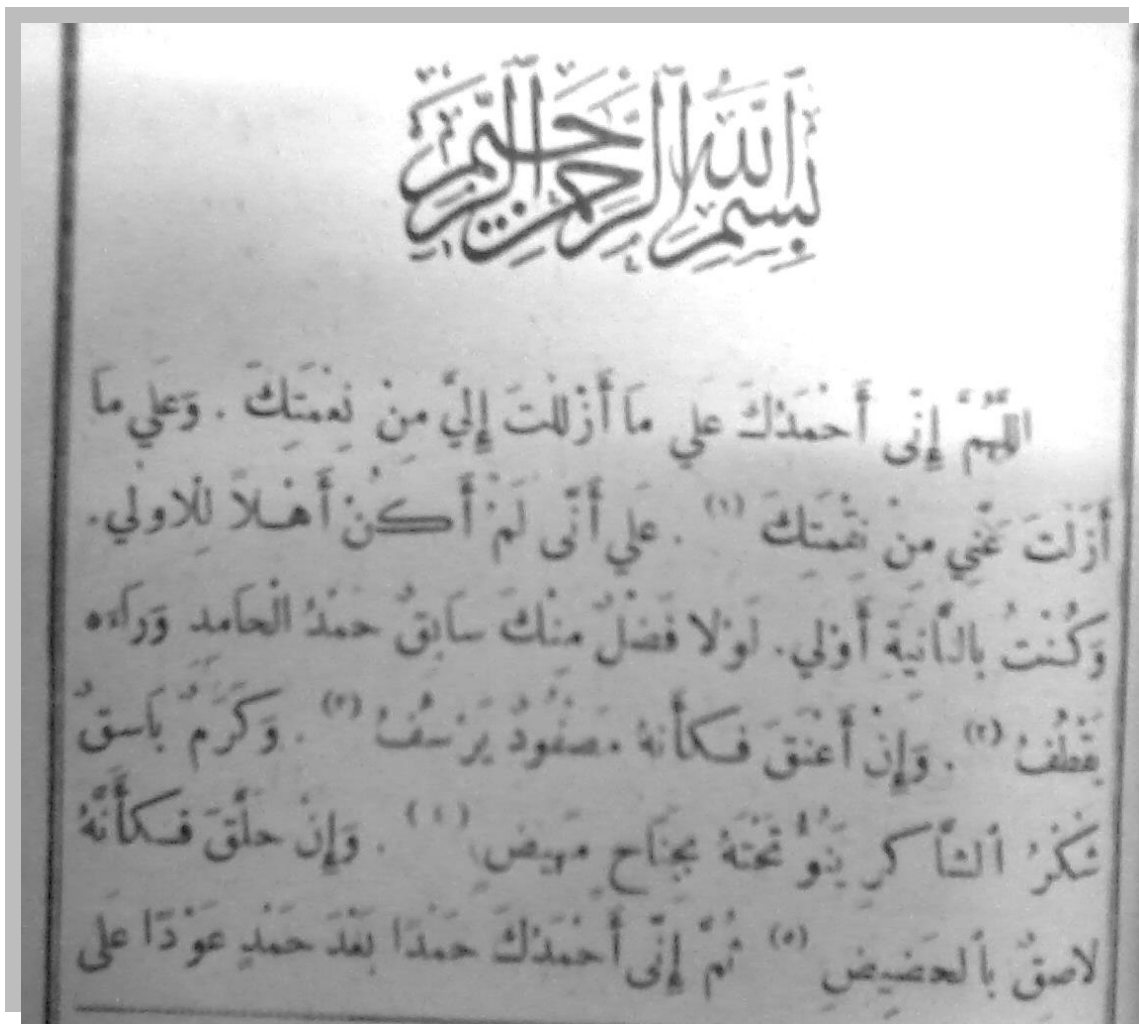 بِسْمِ اللَّهِ الرَّحْمَنِ الرَّحِيمِ
اللَّهُمَّ إِنِّى أَحْمَدُكَ عَلي مَا أَزْلَلْتَ إِلَيَّ مِنْ نِعْمَتِكَ . وَعَلي مَا
أَزَلْتَ عَنِّي مِنْ نِقْمَتِكَ (١) . عَلي أَنِّى لَمْ أَكُنْ أَهْلاً لِلْاولي.
وَكُنْتُ بِالثَّانِيَةِ أَوْلي. لَوْلا فَضْلٌ مِنْكَ سَابِقٌ حَمْدُ الْحَامِدِ وَرَاءَه
يَقْطُفُ (٢) . وَإِنْ أَعْنَقَ فَكَأَنهُ مَصْفُودٌ يَرْسُفُ (٣) . وَكَرَمٌ بَاسِقٌ
شكْرُ الشَّاكرِ يَنُوُّ تَحْتَهُ بِجَنَاحٍ مَهِيضٍ (٤) . وَإِنْ حَلَّقَ فَكَأَنَّهُ
لاصِقٌ بِالحَضِيضِ (٥) ثُمَّ إِنِّى أَحْمَدُكَ حَمْدًا بَعْدَ حَمْدٍ عَوْدًا عَلى